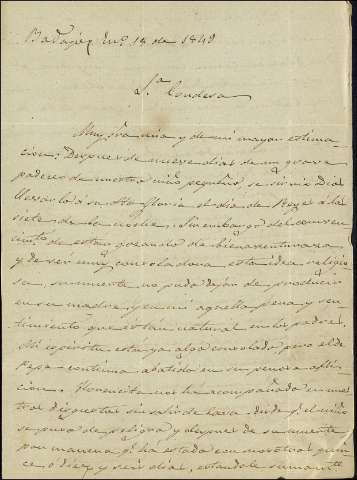 Badajoz En.º 18 de 1849
S.ª Condesa
Muy Sra mia y de mi mayor estima-
cion: Despues de nueve dias de un grave
padecer de nuestro niño pequeño, se sirvió Dios
llevarlo á su Sta Gloria el dia de Reyes á las
siete de la noche. Sin embargo del conven-
cim.to de estar gozando de bienaventuranza
y de ser muy consoladora esta idea religio-
sa, su muerte no pudo dejar de producir
en su madre y en mi aquella pena y sen-
timiento que es tan natural en los padres.
Mi espiritu está ya algo consolado pero el de
Pepa continua abatido en su penosa aflic-
cion. Florencita nos ha acompañado en nues-
tros disgustos sin salir de casa. Desde q.e el niño
se puso de peligro y despues de su muerte
por manera q.e ha estado con nosotros quin-
ce ó diez y seis dias, estandole sumam.te